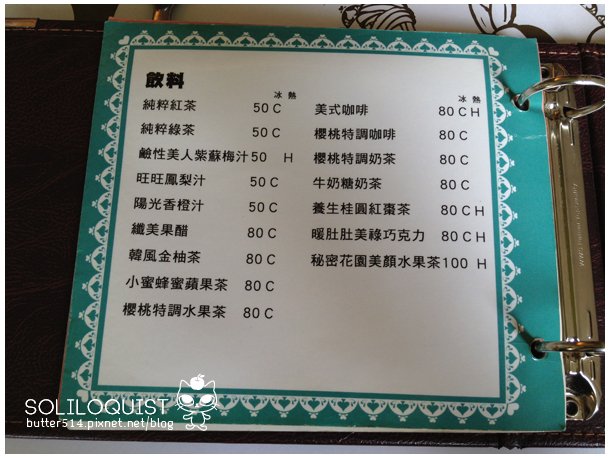 飲料
冰 熱
純粹紅茶 50 C
純粹綠茶 50 C
鹼性美人紫蘇梅汁 50 H
旺旺鳳梨汁 50 C
陽光香橙汁 50 C
纖美果醋 80 C
韓風金柚茶 80 C
小蜜蜂蜜蘋果茶 80 C
櫻桃特調水果茶 80 C
冰 熱
美式咖啡 80 C H
櫻桃特調咖啡 80 C
櫻桃特調奶茶 80 C
牛奶糖奶茶 80 C
養生桂圓紅棗茶 80 C H
暖肚肚美祿巧克力 80 C H
秘密花園美顏水果茶 100 H
SOLILOQUIST
butter514.pixnet.net/blog